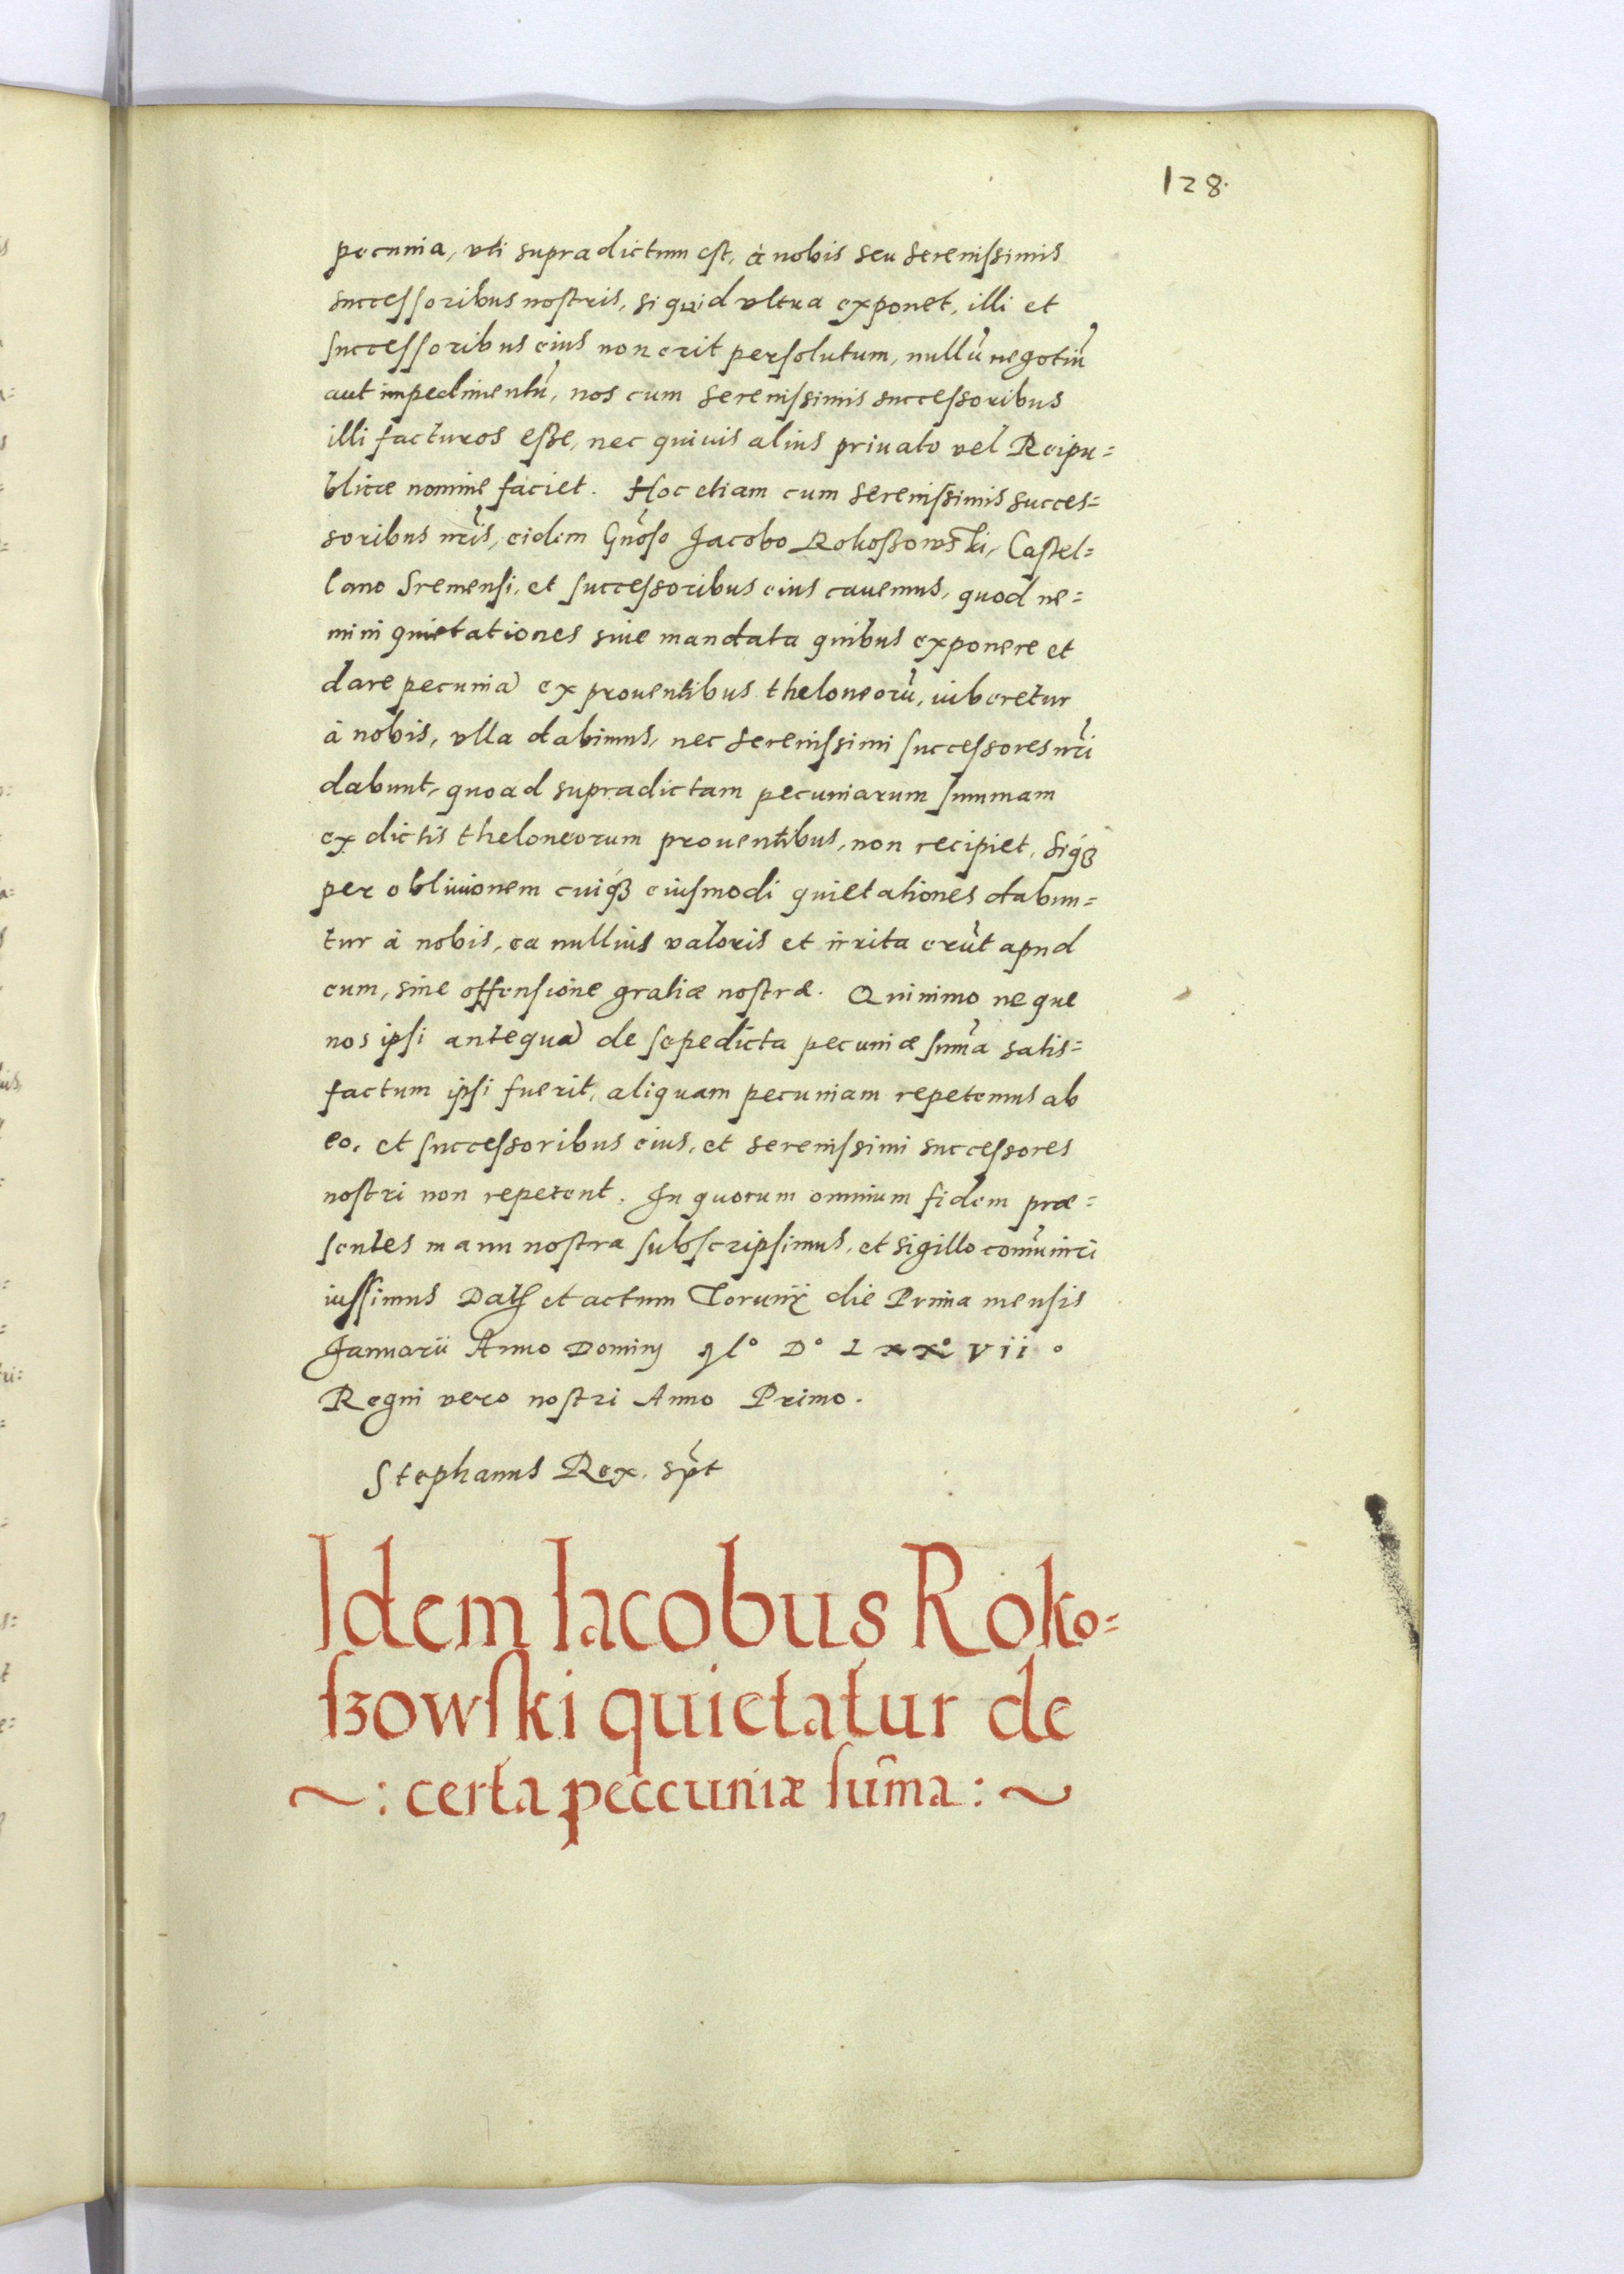 128.
pecunia, vti supradictum est, à nobis seu serenissimis
successoribus nostris, si quid vltra exponet, illi et
successoribus eius non erit persolutum, nullũ negotiũ
aut impedimentũ, nos cum serenissimis successoribus
illi facturos esse, nec quiuis alius priuato vel Reipu=
blicæ nomine faciet. Hoc etiam cum serenissimis succes=
soribus nr̃is, eidem Gnõso Jacobo Rokoszowski, Castel=
lano Sremensi, et successoribus eius cauemus, quod ne=
mini quietationes siue mandata quibus exponere et
dare pecuniã ex prouentibus theloneorũ, iuberetur
à nobis, vlla dabimus, nec serenissimi successores nr̃i
dabunt, quoad supradictam pecuniarum summam
ex dictis theloneorum prouentibus, non recipiet, siqꝫ
per obliuionem cuiqꝫ eiusmodi quietationes dabun=
tur à nobis, ea nullius valoris et irrita erũt apud
eum, sine offensione gratiæ nostræ. Quinimo neque
nos ipsi antequã de sepedicta pecuniæ sum̃a satis=
factum ipsi fuerit, aliquam pecuniam repetemus ab
eo, et successoribus eius, et serenissimi successores
nostri non repetent. In quorum omnium fidem præ=
sentes manu nostra subscripsimus, et sigillo com̃uniri
iussimus Datꝭ et actum Toruniȩ die Prima mensis
Januarii Anno Dominj Mº Dº Lxxº vii º
Regni vero nostri Anno Primo.
Stephanus Rex. sp̃t
Idem Iacobus Roko=
ſzowſki quietatur de
~: certa peccuniæ ſum̃a :~